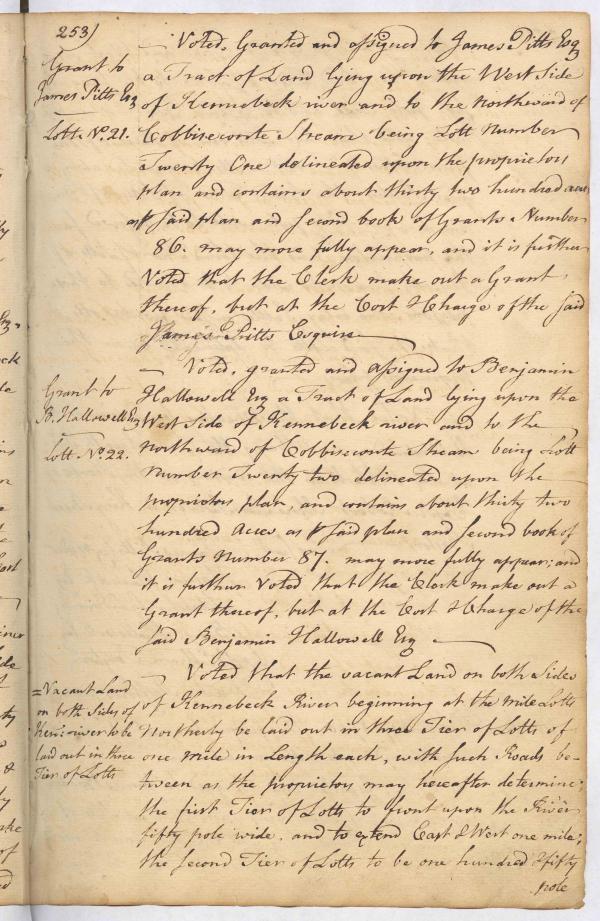 253)
Grant to
James Pitts Esq
Lott. No. 21.
Voted, Granted and assigned to James Pitts Esq
a Tract of Land lying upon the West Side
of Kennebeck river and to the northward of
Cobbiseconte Stream being Lott Number
Twenty One delineated upon the proprietors
plan and contains about thirty two hundred acres
as ⅌ said plan and second book of Grants Number
86. may more fully appear, and it is further
Voted that the Clerk make out a Grant
thereof, but at the Cost & Charge of the said
James Pitts Esquire
Grant to
B. Hallowell Esq
Lott. No. 22.
Voted, granted and assigned to Benjamin
Hallowell Esq a Tract of Land lying upon the
West Side of Kennebeck river and to the
northward of Cobbiseconte Stream being Lott
Number Twenty two delineated upon the
proprietors plan, and contains about thirty two
hundred Acres as ⅌ said plan and second book of
Grants Number 87. may more fully appear; and
it is further Voted that the Clerk make out a
Grant thereof, but at the Cost & Charge of the
said Benjamin Hallowell Esq
=Vacant Land
on both Sides of
Ken: river to be
laid out in three
Tier of Lotts
Voted that the vacant Land on both Sides
of Kennebeck River beginning at the mile Lotts
Northerly be laid out in three Tier of Lotts of
one mile in Length each, with such Roads be-
tween as the proprietors may hereafter determine;
the first Tier of Lotts to front upon the River
fifty pole wide, and to extend East & West one mile;
the second Tier of Lotts to be one hundred & fifty
pole